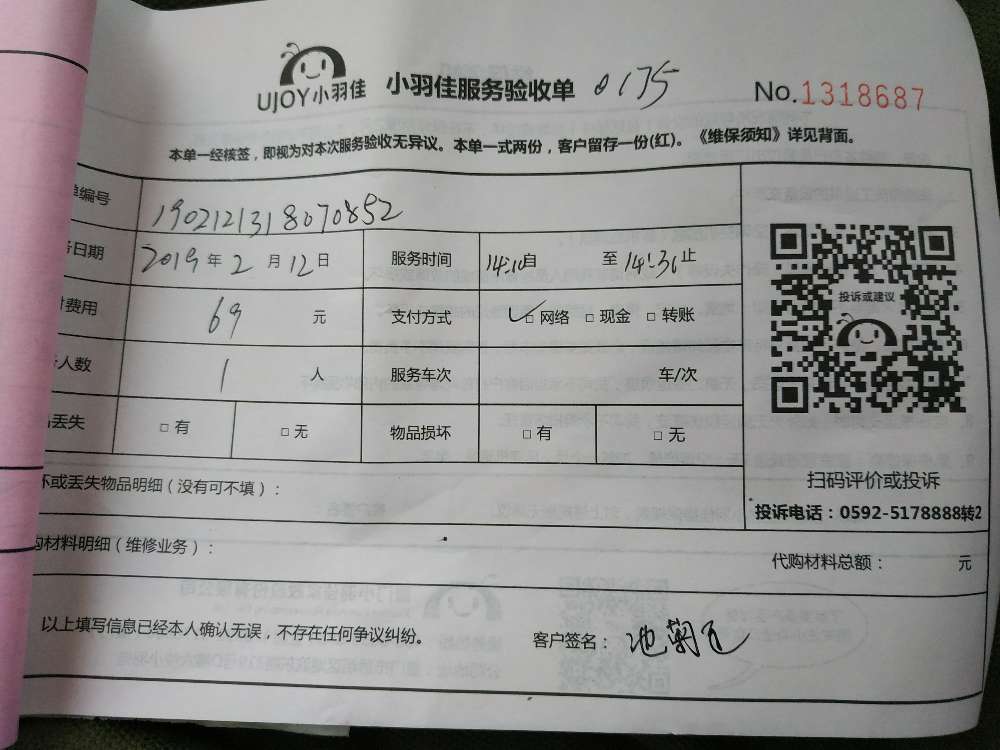 UJOY小羽佳 小羽佳服务验收单 0175 No.1318687
本单一经核签，即视为对本次服务验收无异议。本单一式两份，客户留存一份(红)。《维保须知》详见背面。
单编号 1902121318070852
务日期 2019年2月12日 服务时间 14:10自 至14:36止
付费用 69 元 支付方式 ✓□网络 □现金 □转账
务人数 1 人 服务车次 车/次
品丢失 □有 □无 物品损坏 □有 □无
投诉或建议
扫码评价或投诉
投诉电话：0592-5178888转2
坏或丢失物品明细（没有可不填）：
购材料明细（维修业务）： 代购材料总额： 元
以上填写信息已经本人确认无误，不存在任何争议纠纷。 客户签名：